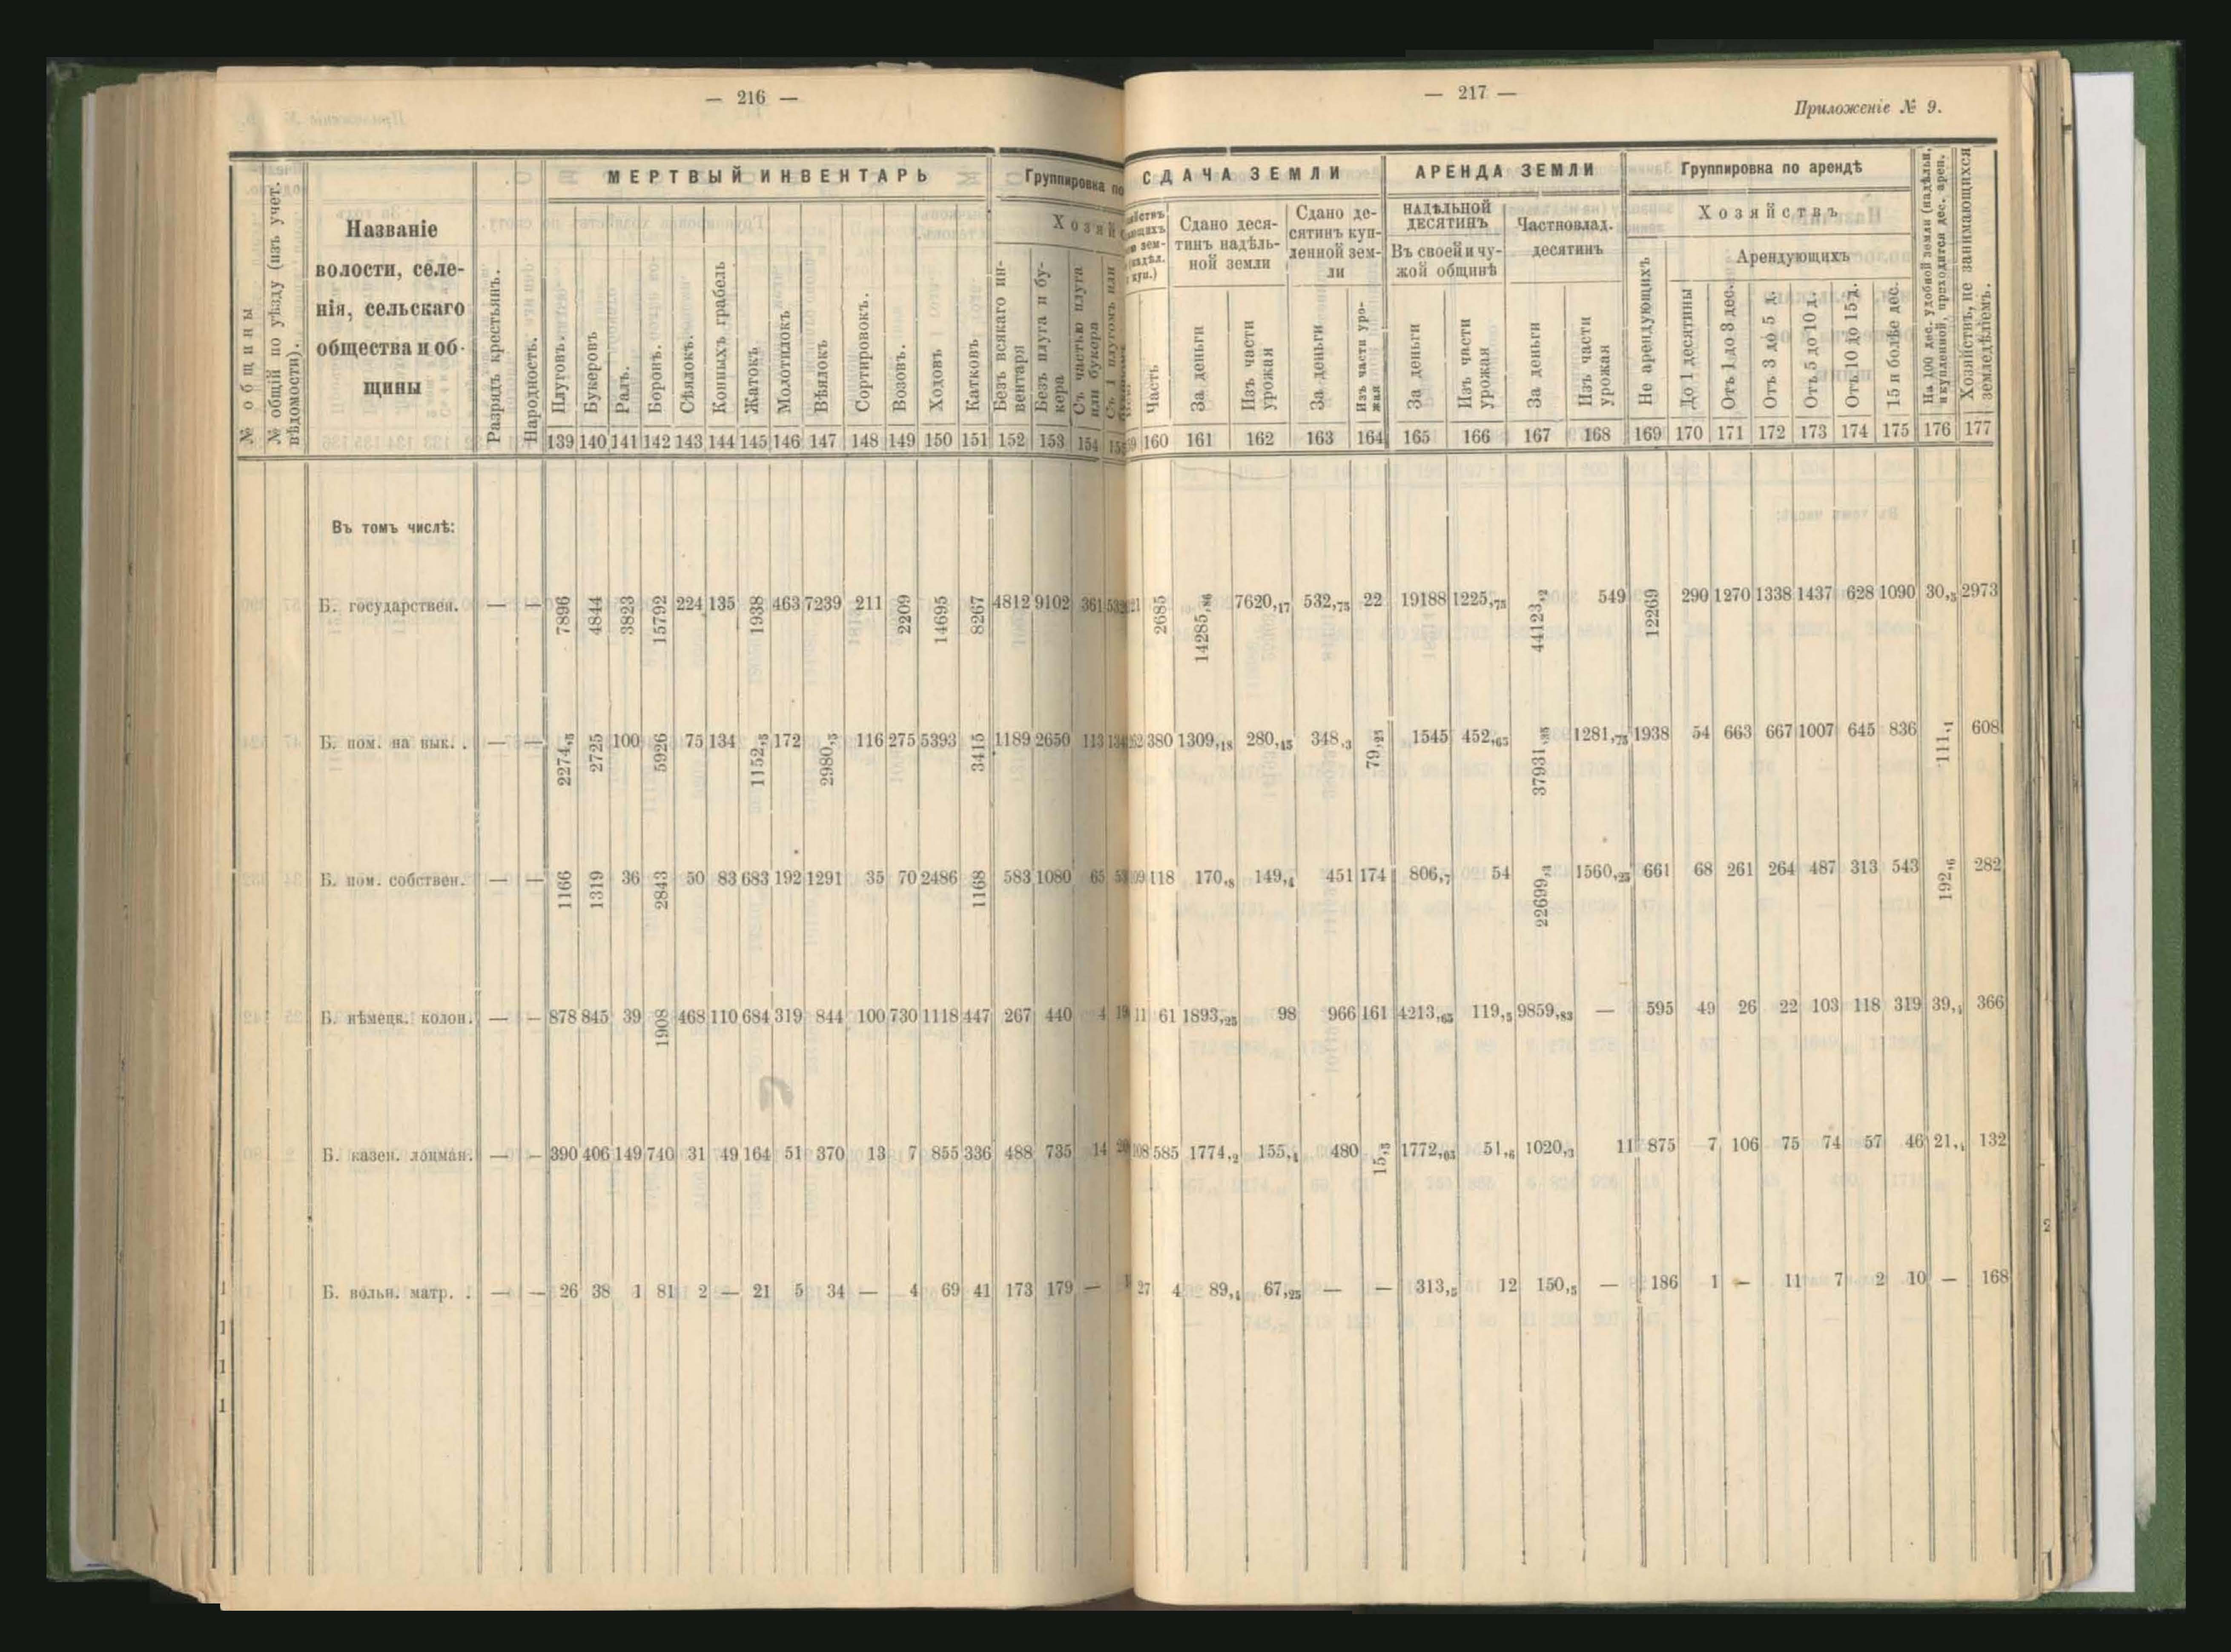 — 216 —
МЕРТВЫЙ ИНВЕНТАРЬ
Группировка по
Хозяй
№ общины
№ общій по уѣзду (изъ учет. вѣдомости).
Названіе
волости, селе-
нія, сельскаго
общества и об-
щины
Разрядъ крестьянъ.
Народность.
Плуговъ.
Букеровъ
Ралъ.
Боронъ.
Сѣялокъ.
Конныхъ грабель
Жатокъ
Молотилокъ
Вѣялокъ
Сортировокъ.
Возовъ.
Ходовъ
Катковъ
Безъ всякаго ин-
вентаря
Безъ плуга и бу-
кера
Съ частью плуга
или букера
Съ 1 плугомъ или
139 140 141 142 143 144 145 146 147 148 149 150 151 152 153 154 155
Въ томъ числѣ:
Б. государствен. — — 7896 4844 3823 15792 224 135 1938 463 7239 211 2209 14695 8267 4812 9102 361
Б. пом. на вык. . — — 2274,5 2725 100 5926 75 134 1152,5 172 2980,5 116 275 5393 3415 1189 2650 113
Б. пом. собствен. — — 1166 1319 36 2843 50 83 683 192 1291 35 70 2486 1168 583 1080 65
Б. нѣмецк. колон. — — 878 845 39 1908 468 110 684 319 844 100 730 1118 447 267 440 4
Б. казен. лоцман. — — 390 406 149 740 31 49 164 51 370 13 7 855 336 488 735 14
Б. вольн. матр. . — — 26 38 1 81 2 — 21 5 34 — 4 69 41 173 179 —
— 217 —
Приложеніе № 9.
СДАЧА ЗЕМЛИ
АРЕНДА ЗЕМЛИ
Группировка по арендѣ
Сдано деся-
тинъ надѣль-
ной земли
Сдано де-
сятинъ куп-
ленной зем-
ли
НАДѢЛЬНОЙ
ДЕСЯТИНЪ
Въ своей и чу-
жой общинѣ
Частновлад.
десятинъ
Хозяйствъ
Арендующихъ
Часть
За деньги
Изъ части
урожая
За деньги
Изъ части уро-
жая
За деньги
Изъ части
урожая
За деньги
Изъ части
урожая
Не арендующихъ
До 1 десятины
Отъ 1 до 3 дес.
Отъ 3 до 5 д.
Отъ 5 до 10 д.
Отъ 10 до 15 д.
15 и болѣе дес.
На 100 дес. удобной земли (надѣльн.
и купленной, приходится дес. арен.
Хозяйствъ, не занимающихся
земледѣліемъ.
160 161 162 163 164 165 166 167 168 169 170 171 172 173 174 175 176 177
2685 14285,86 7620,17 532,75 22 19188 1225,75 44123,2 549 12269 290 1270 1338 1437 628 1090 30,5 2973
380 1309,18 280,45 348,3 79,25 1545 452,65 37931,35 1281,75 1938 54 663 667 1007 645 836 111,1 608
118 170,8 149,4 451 174 806,7 54 22699,3 1560,25 661 68 261 264 487 313 543 192,6 282
11 61 1893,25 98 966 161 4213,65 119,5 9859,83 — 595 49 26 22 103 118 319 39,1 366
585 1774,2 155,4 480 15,5 1772,03 51,6 1020,3 11 875 7 106 75 74 57 46 21,4 132
27 4 89,4 67,25 — — 313,5 12 150,5 — 186 1 — 11 7 2 10 — 168